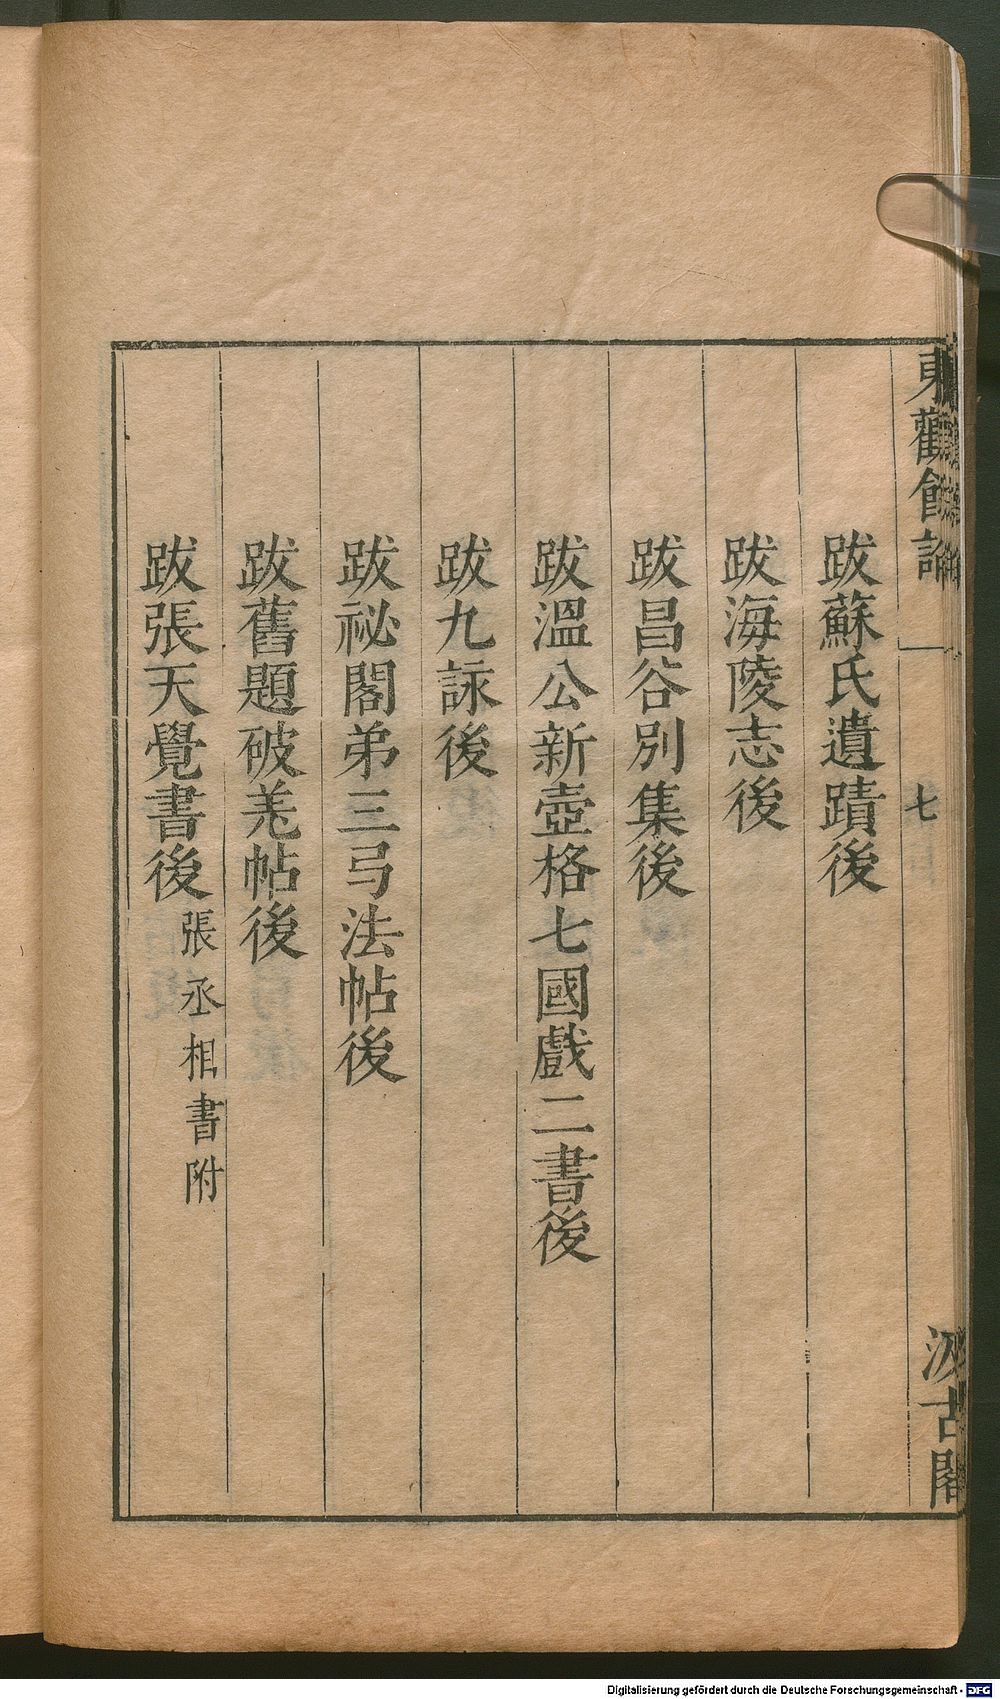 東觀餘論
七
汲古閣
跋蘇氏遺蹟後
跋海陵志後
跋昌谷別集後
跋溫公新壺格七國戲二書後
跋九詠後
跋祕閣弟三弓法帖後
跋舊題破羌帖後
跋張天覺書後 張丞相書附
Digitalisierung gefördert durch die Deutsche Forschungsgemeinschaft - DFG